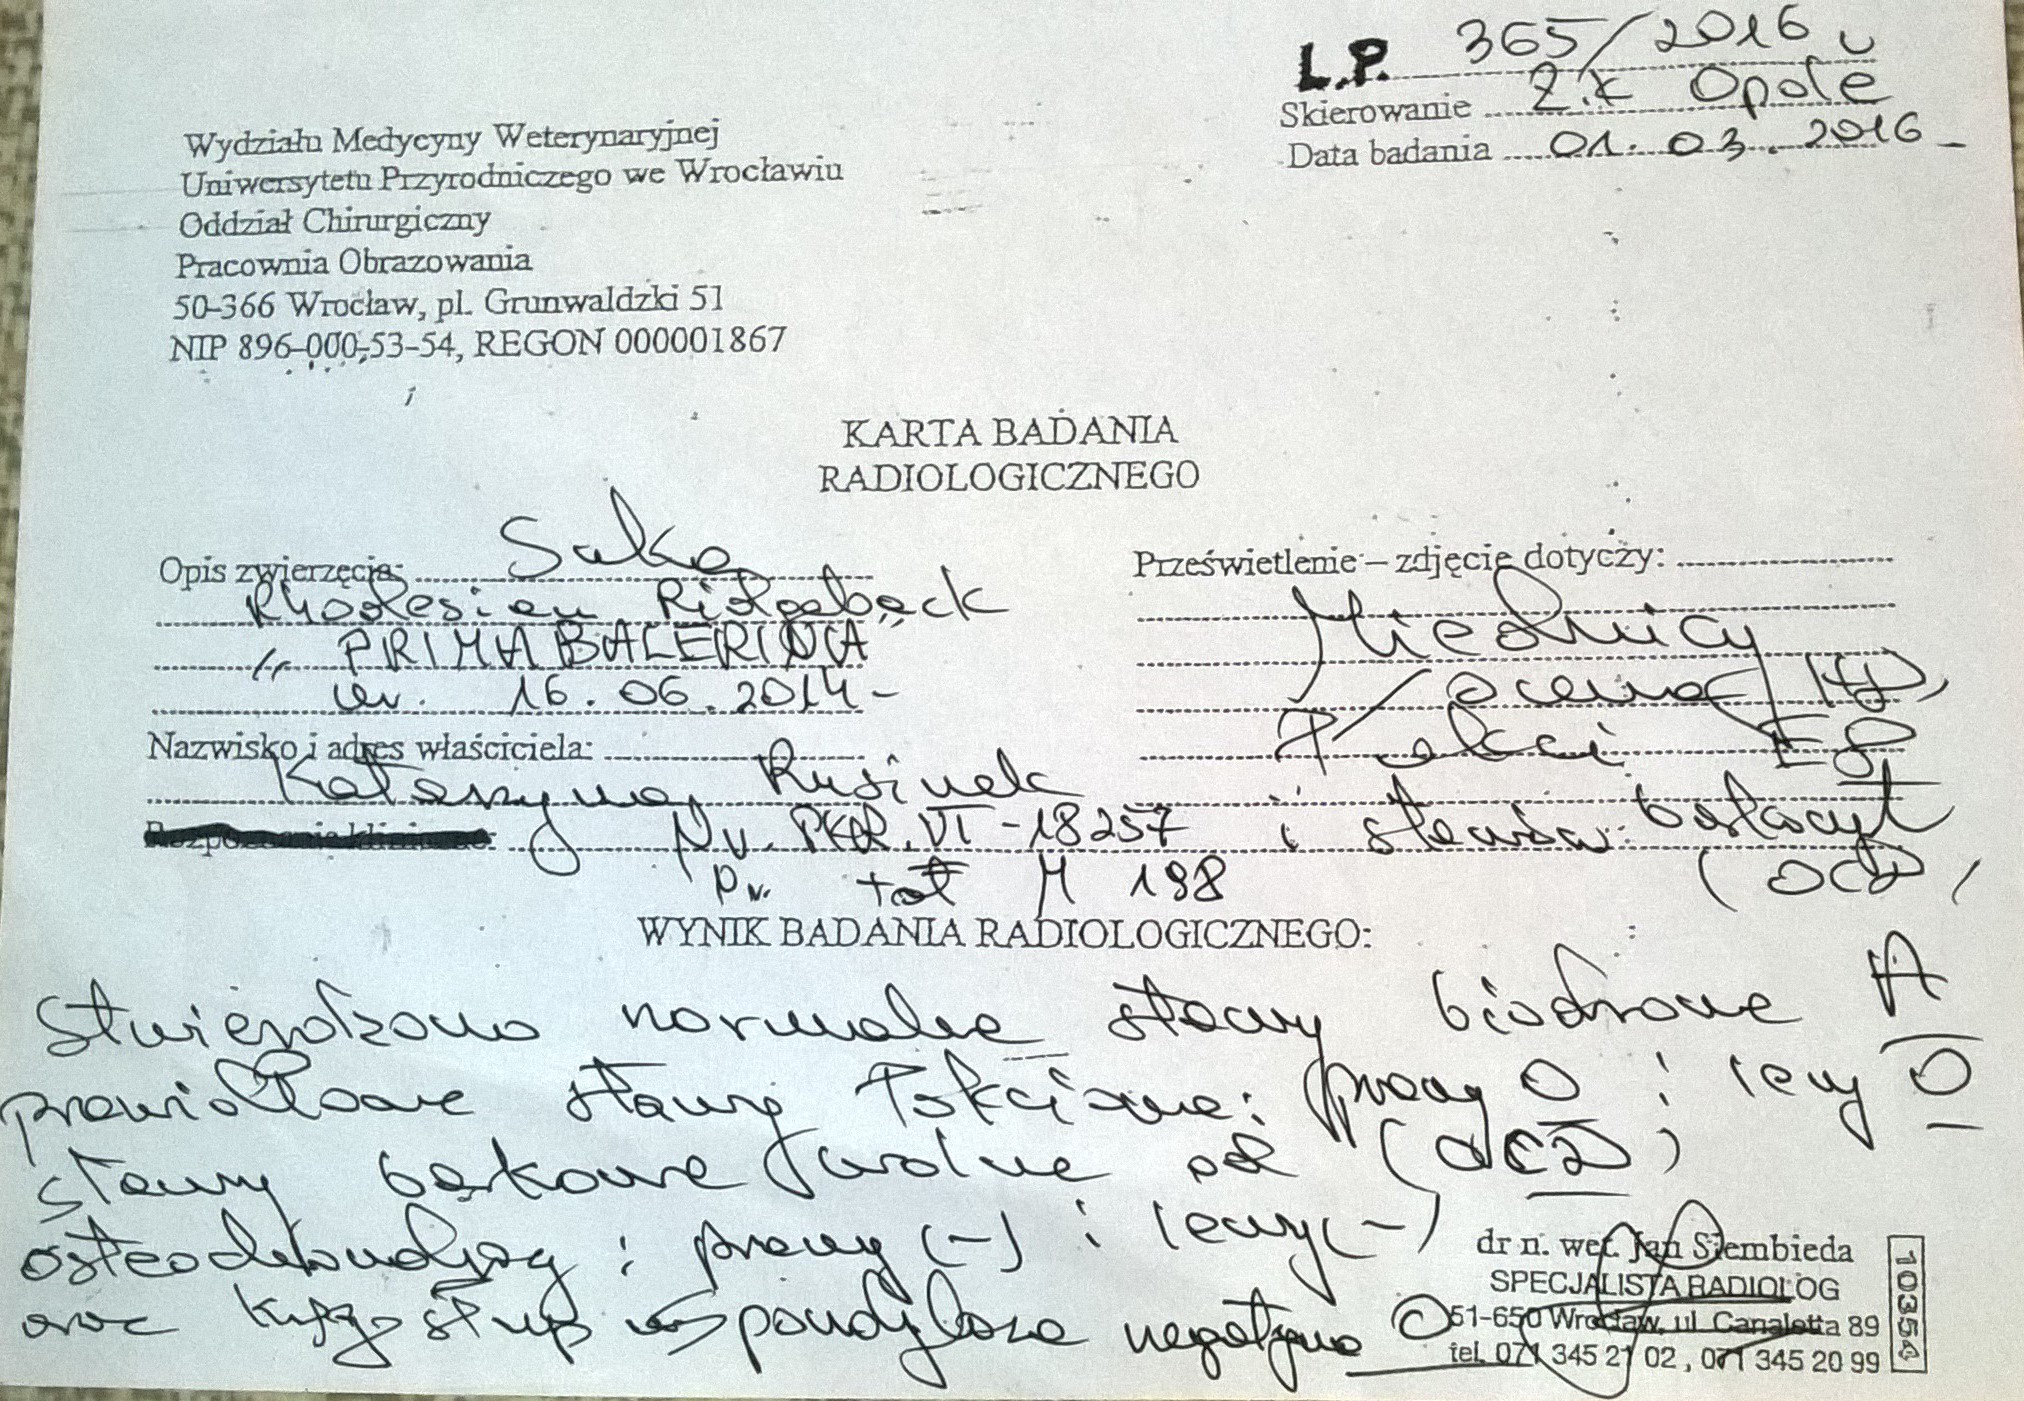 L.P. 365/2016
Skierowanie Z.K Opole
Data badania 01.03.2016
Wydziału Medycyny Weterynaryjnej
Uniwersytetu Przyrodniczego we Wrocławiu
Oddział Chirurgiczny
Pracownia Obrazowania
50-366 Wrocław, pl. Grunwaldzki 51
NIP 896-000-53-54, REGON 000001867
KARTA BADANIA
RADIOLOGICZNEGO
Opis zwierzęcia: Suka
Rhodesian Ridgeback
"PRIMABALERINA"
ur. 16.06.2014
Nazwisko i adres właściciela:
Katarzyna Rusinek
Nr. PKR.VI-18257
tat M 198
Prześwietlenie – zdjęcie dotyczy:
Miednicy
/ocena HD,
Łokci ED
i stawów barkowych
(OCD)
WYNIK BADANIA RADIOLOGICZNEGO:
Stwierdzono normalne stawy biodrowe A
prawidłowe stawy łokciowe: prawy O i lewy O
stawy barkowe wolne od (OCD)
osteochondrozy: prawy (-) i lewy (-)
oraz kręgosłup spondyloza negatywna
dr n. wet. Jan Siembieda
SPECJALISTA RADIOLOG
51-650 Wrocław, ul. Canaletta 89
tel. 071 345 21 02, 071 345 20 99
10354